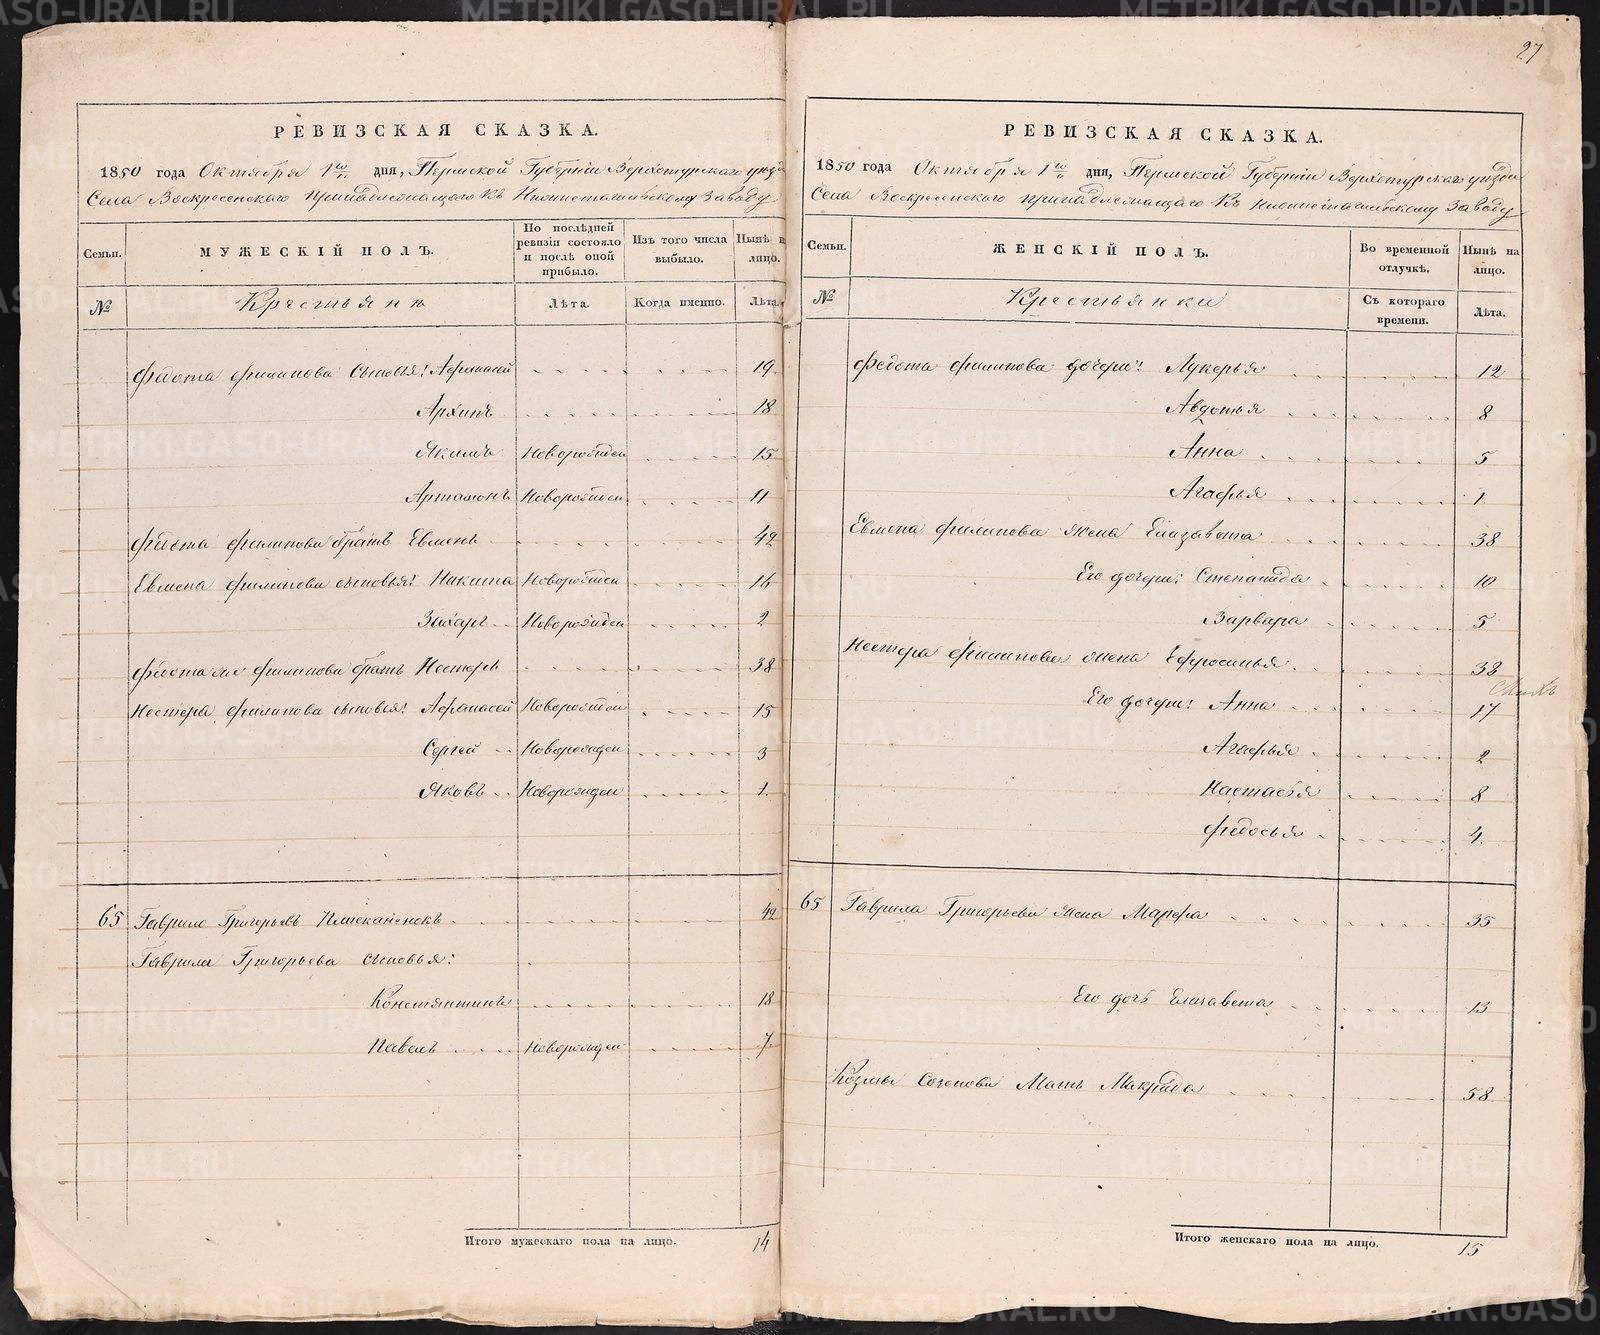 27
РЕВИЗСКАЯ СКАЗКА.
1850 года Октября 1го дня, Пермской Губерніи Верхотурскаго уезда
Села Воскресенскаго принадлежащаго Къ Нижнетагильскому Заводу
Семьи.
МУЖЕСКІЙ ПОЛЪ.
По послѣдней ревизіи состояло и послѣ оной прибыло.
Изъ того числа выбыло.
Нынѣ на лицо.
№
Крестьяне
Лѣта.
Когда именно.
Лѣта.
Федота Филипова сыновья: Афанасей 19
Архипъ 18
Якимъ Новорожден 15
Артамонъ Новорожден 11
Федота Филипова братъ Евменъ 42
Евмена Филипова сыновья: Никита Новорожден 14
Захаръ Новорожден 2
Федота же Филипова братъ Нестеръ 38
Нестера Филипова сыновья: Афанасей Новорожден 15
Сергей Новорожден 3
Яковъ Новорожден 1
65 Гаврило Григорьевъ 42
Гаврила Григорьева сыновья:
Константинъ 18
Павелъ Новорожден 7
Итого мужескаго пола на лицо. 14
РЕВИЗСКАЯ СКАЗКА.
1850 года Октября 1го дня, Пермской Губерніи Верхотурскаго уезда
Села Воскресенскаго принадлежащаго Къ Нижнетагильскому Заводу
Семьи.
ЖЕНСКІЙ ПОЛЪ.
Во временной отлучкѣ.
Нынѣ на лицо.
№
Крестьянки
Съ котораго времени.
Лѣта.
Федота Филипова дочери: Лукерья 12
Авдотья 8
Анна 5
Агафья 1
Евмена Филипова жена Елизавета 38
Его дочери: Степанида 10
Варвара 5
Нестера Филипова жена Ефросинья 38
Его дочери: Анна 17
Агафья 2
Настасья 8
Федосья 4
65 Гаврила Григорьева жена Марфа 35
Его дочь Елизавета 13
Козмы Мать Макрида 58
Итого женскаго пола на лицо. 15
METRIKI.GASO-URAL.RU